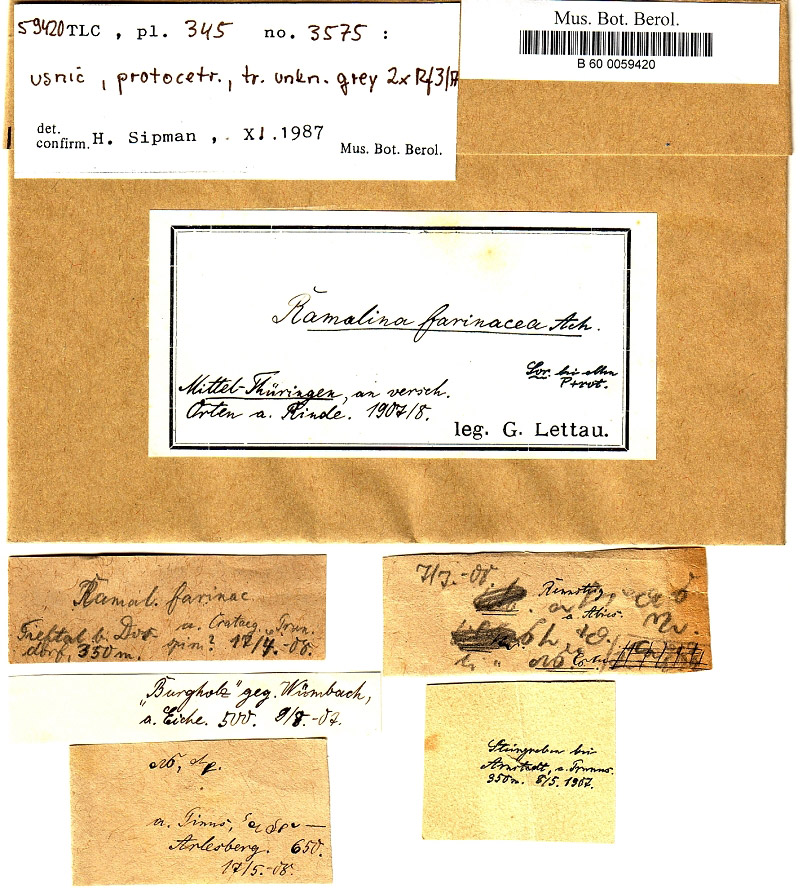 59420 TLC , pl. 345 no. 3575 :
usnic , protocetr., tr. unkn. grey 2x Rf3/
det.
confirm. H. Sipman , XI.1987
Mus. Bot. Berol.
Mus. Bot. Berol.
B 60 0059420
Ramalina farinacea Ach.
Sor. bei allen
Prot.
Mittel-Thüringen, an versch.
Orten a. Rinde. 1907/8.
leg. G. Lettau.
Ramal. farinac.
b. Dos a. Crataeg. Prun.
dorf, 350 m. spin? 12/4.-08.
7/7.-08.
a. Abies.
„Burgholz“ geg. Wümbach,
a. Eiche. 500. 9/8.-07.
a. Pinus,
Arlesberg. 650.
17/5.-08.
Steingraben bei
Arnstadt, a. Prunus.
350m. 8/5. 1907.